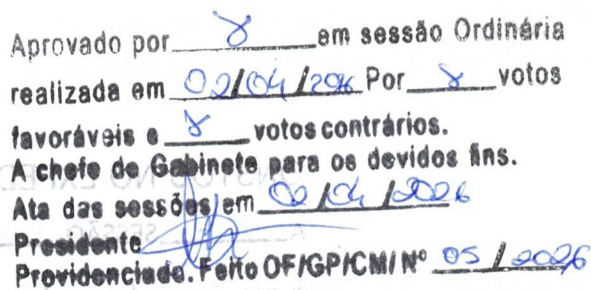 Aprovado por 8 em sessão Ordinária
realizada em 02/04/2026 Por 8 votos
favoráveis e 8 votos contrários.
A chefe de Gabinete para os devidos fins.
Ata das sessões em 02/04/2026
Presidente
Providenciado. Feito OF/GP/CMI Nº 05/2026